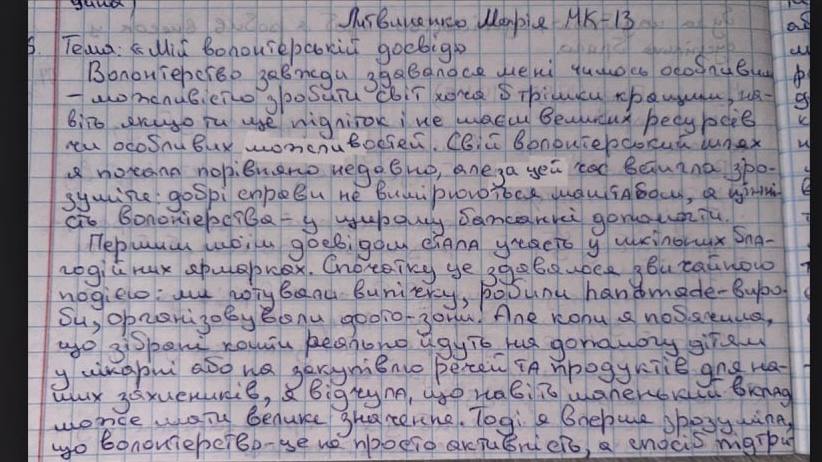 Литвиненко Марія МК-13
Тема: «Мій волонтерській досвід»
Волонтерство завжди здавалося мені чимось особливим
– можливістю зробити світ хоча б трішки кращим, на-
віть якщо ти ще підліток і не маєш великих ресурсів
чи особливих можливостей. Свій волонтерський шлях
я почала порівняно недавно, але за цей час встигла зро-
зуміти: добрі справи не вимірюються маштабом, а цінні-
сть волонтерства – у щирому бажанні допомогти.
Першим моїм досвідом стала участь у шкільних бла-
годійних ярмарках. Спочатку це здавалося звичайною
подією: ми готували випічку, робили handmade-виро-
би, організовували фото-зони. Але коли я побачила,
що зібрані кошти реально йдуть на допомогу дітям
у лікарні або на закупівлю речей та продуктів для на-
ших захисників, я відчула, що навіть маленький вклад
може мати велике значення. Тоді я вперше зрозуміла,
що волонтерство – це не просто активність, а спосіб підтри